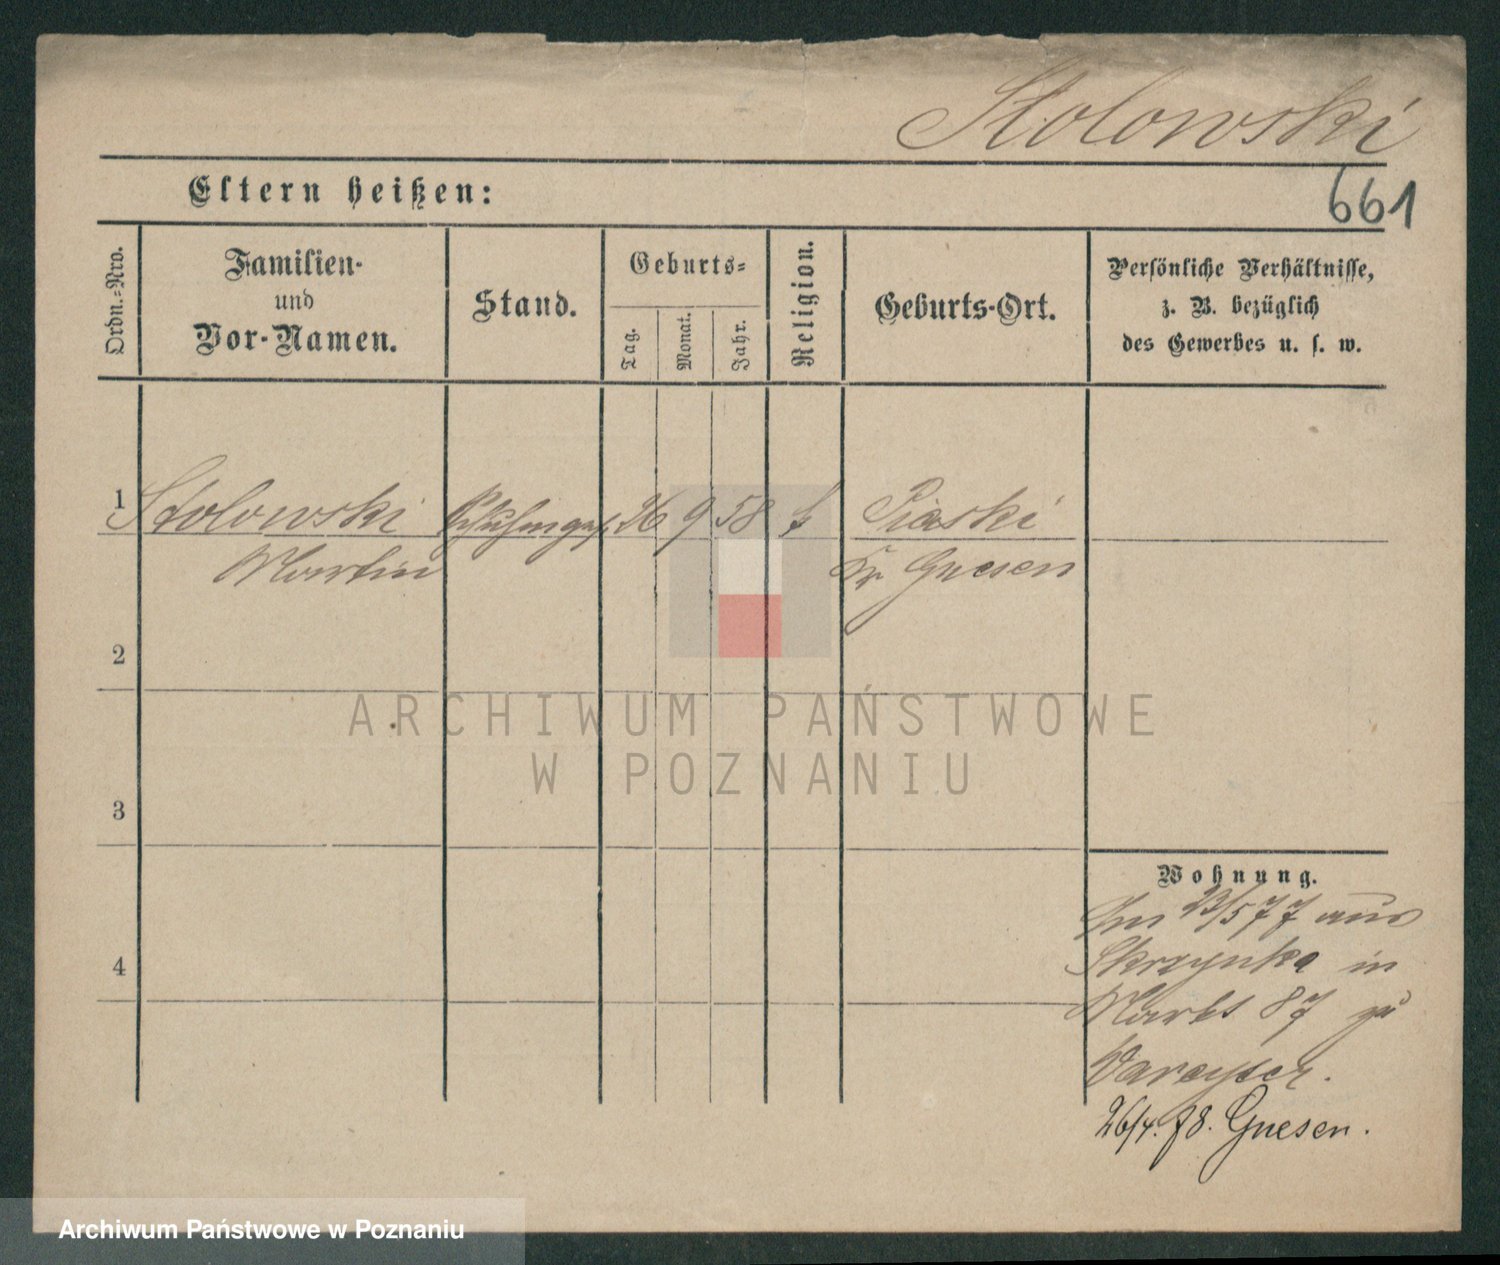 Stolowski
661
Eltern heißen:
Ordn.-Nro.
Familien-
und
Vor-Namen.
Stand.
Geburts-
Tag.
Monat.
Jahr.
Religion.
Geburts-Ort.
Persönliche Verhältnisse,
z. B. bezüglich
des Gewerbes u. s. w.
1 Stolowski 26 9 58 Piaski
Martin Kr Gnesen
2
ARCHIWUM PAŃSTWOWE
W POZNANIU
3
Wohnung.
23/5 77 aus
Skrzynka in
4
Markt 87 zu
26/4. 78. Gnesen.
Archiwum Państwowe w Poznaniu